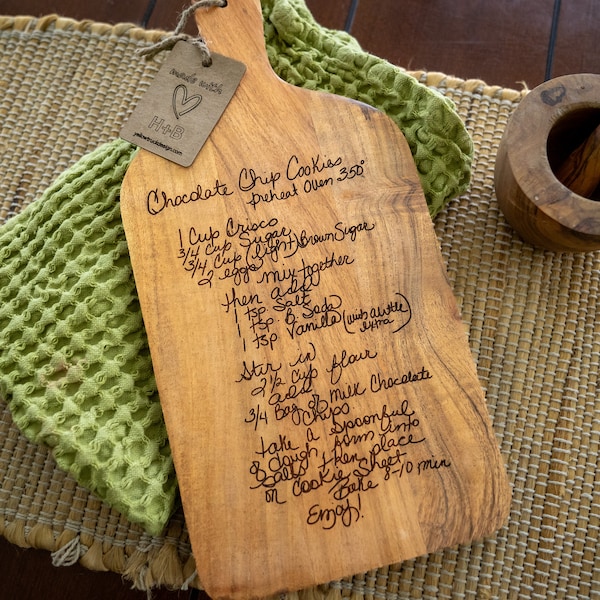 made with
H+B
yellowtruckdesign.com
Chocolate Chip Cookies
preheat Oven 350°
1 Cup Crisco
3/4 Cup Sugar
3/4 Cup (light) Brown Sugar
2 eggs
mix together
then add
1 tsp. Salt
1 tsp. B. Soda
1 tsp Vanilla (with a little extra)
Stir in
2 1/2 Cup flour
add
3/4 Bag of Milk Chocolate
Chips
take a spoonful
of dough form into
balls then place
on Cookie Sheet
Bake 8-10 min
Enjoy!